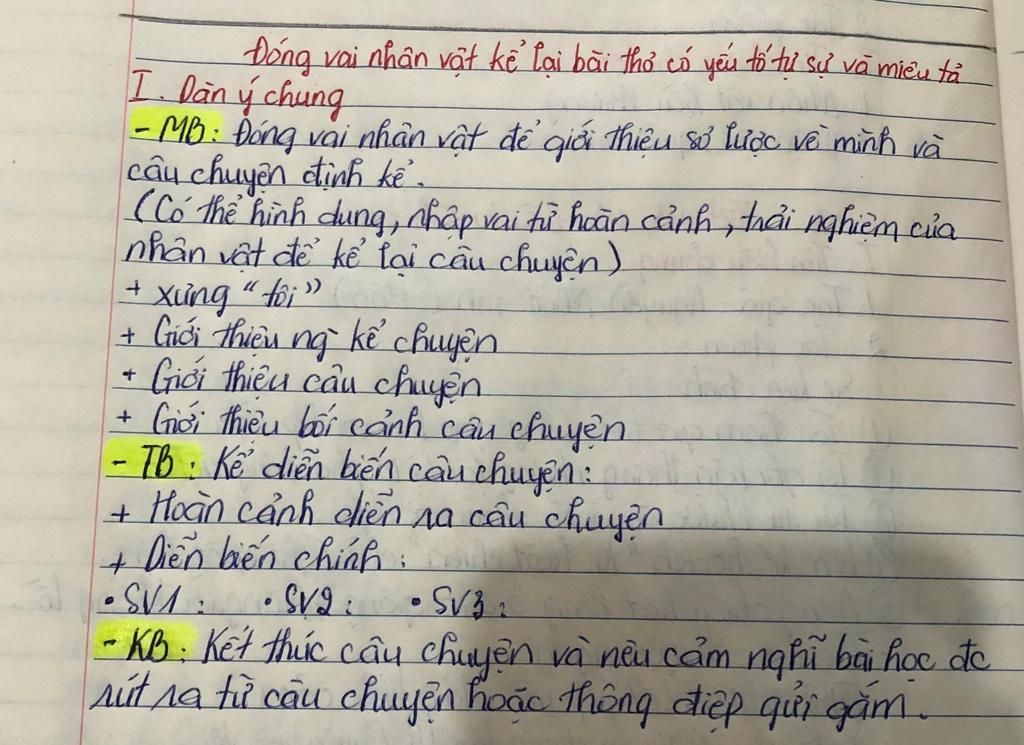 Đóng vai nhân vật kể lại bài thơ có yếu tố tự sự và miêu tả
I. Dàn ý chung
- MB: Đóng vai nhân vật để giới thiệu sơ lược về mình và
câu chuyện định kể.
(Có thể hình dung, nhập vai từ hoàn cảnh, trải nghiệm của
nhân vật để kể lại câu chuyện)
+ xưng "tôi"
+ Giới thiệu ng` kể chuyện
+ Giới thiệu câu chuyện
+ Giới thiệu bối cảnh câu chuyện
- TB: Kể diễn biến câu chuyện:
+ Hoàn cảnh diễn ra câu chuyện
+ Diễn biến chính:
• SV1: • SV2: • SV3:
- KB: Kết thúc câu chuyện và nêu cảm nghĩ bài học đc
rút ra từ câu chuyện hoặc thông điệp gửi gắm.